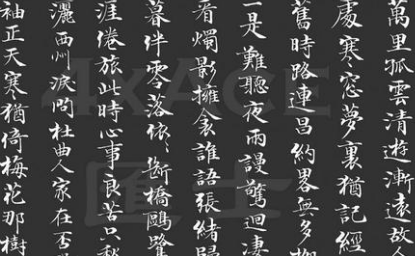 萬里孤雲清遊漸遠故人
處寒窓夢裏猶記經
舊時路連昌約畧無多柳
一是難聽夜雨謾驚迴凄
看燭影擁衾誰語張緒歸
暮伴零落依〻斷橋鷗鷺
涯倦旅此時心事良苦只愁
灑西州淚問杜曲人家在否
袖正天寒猶倚梅花那樹
4XAce
匯士